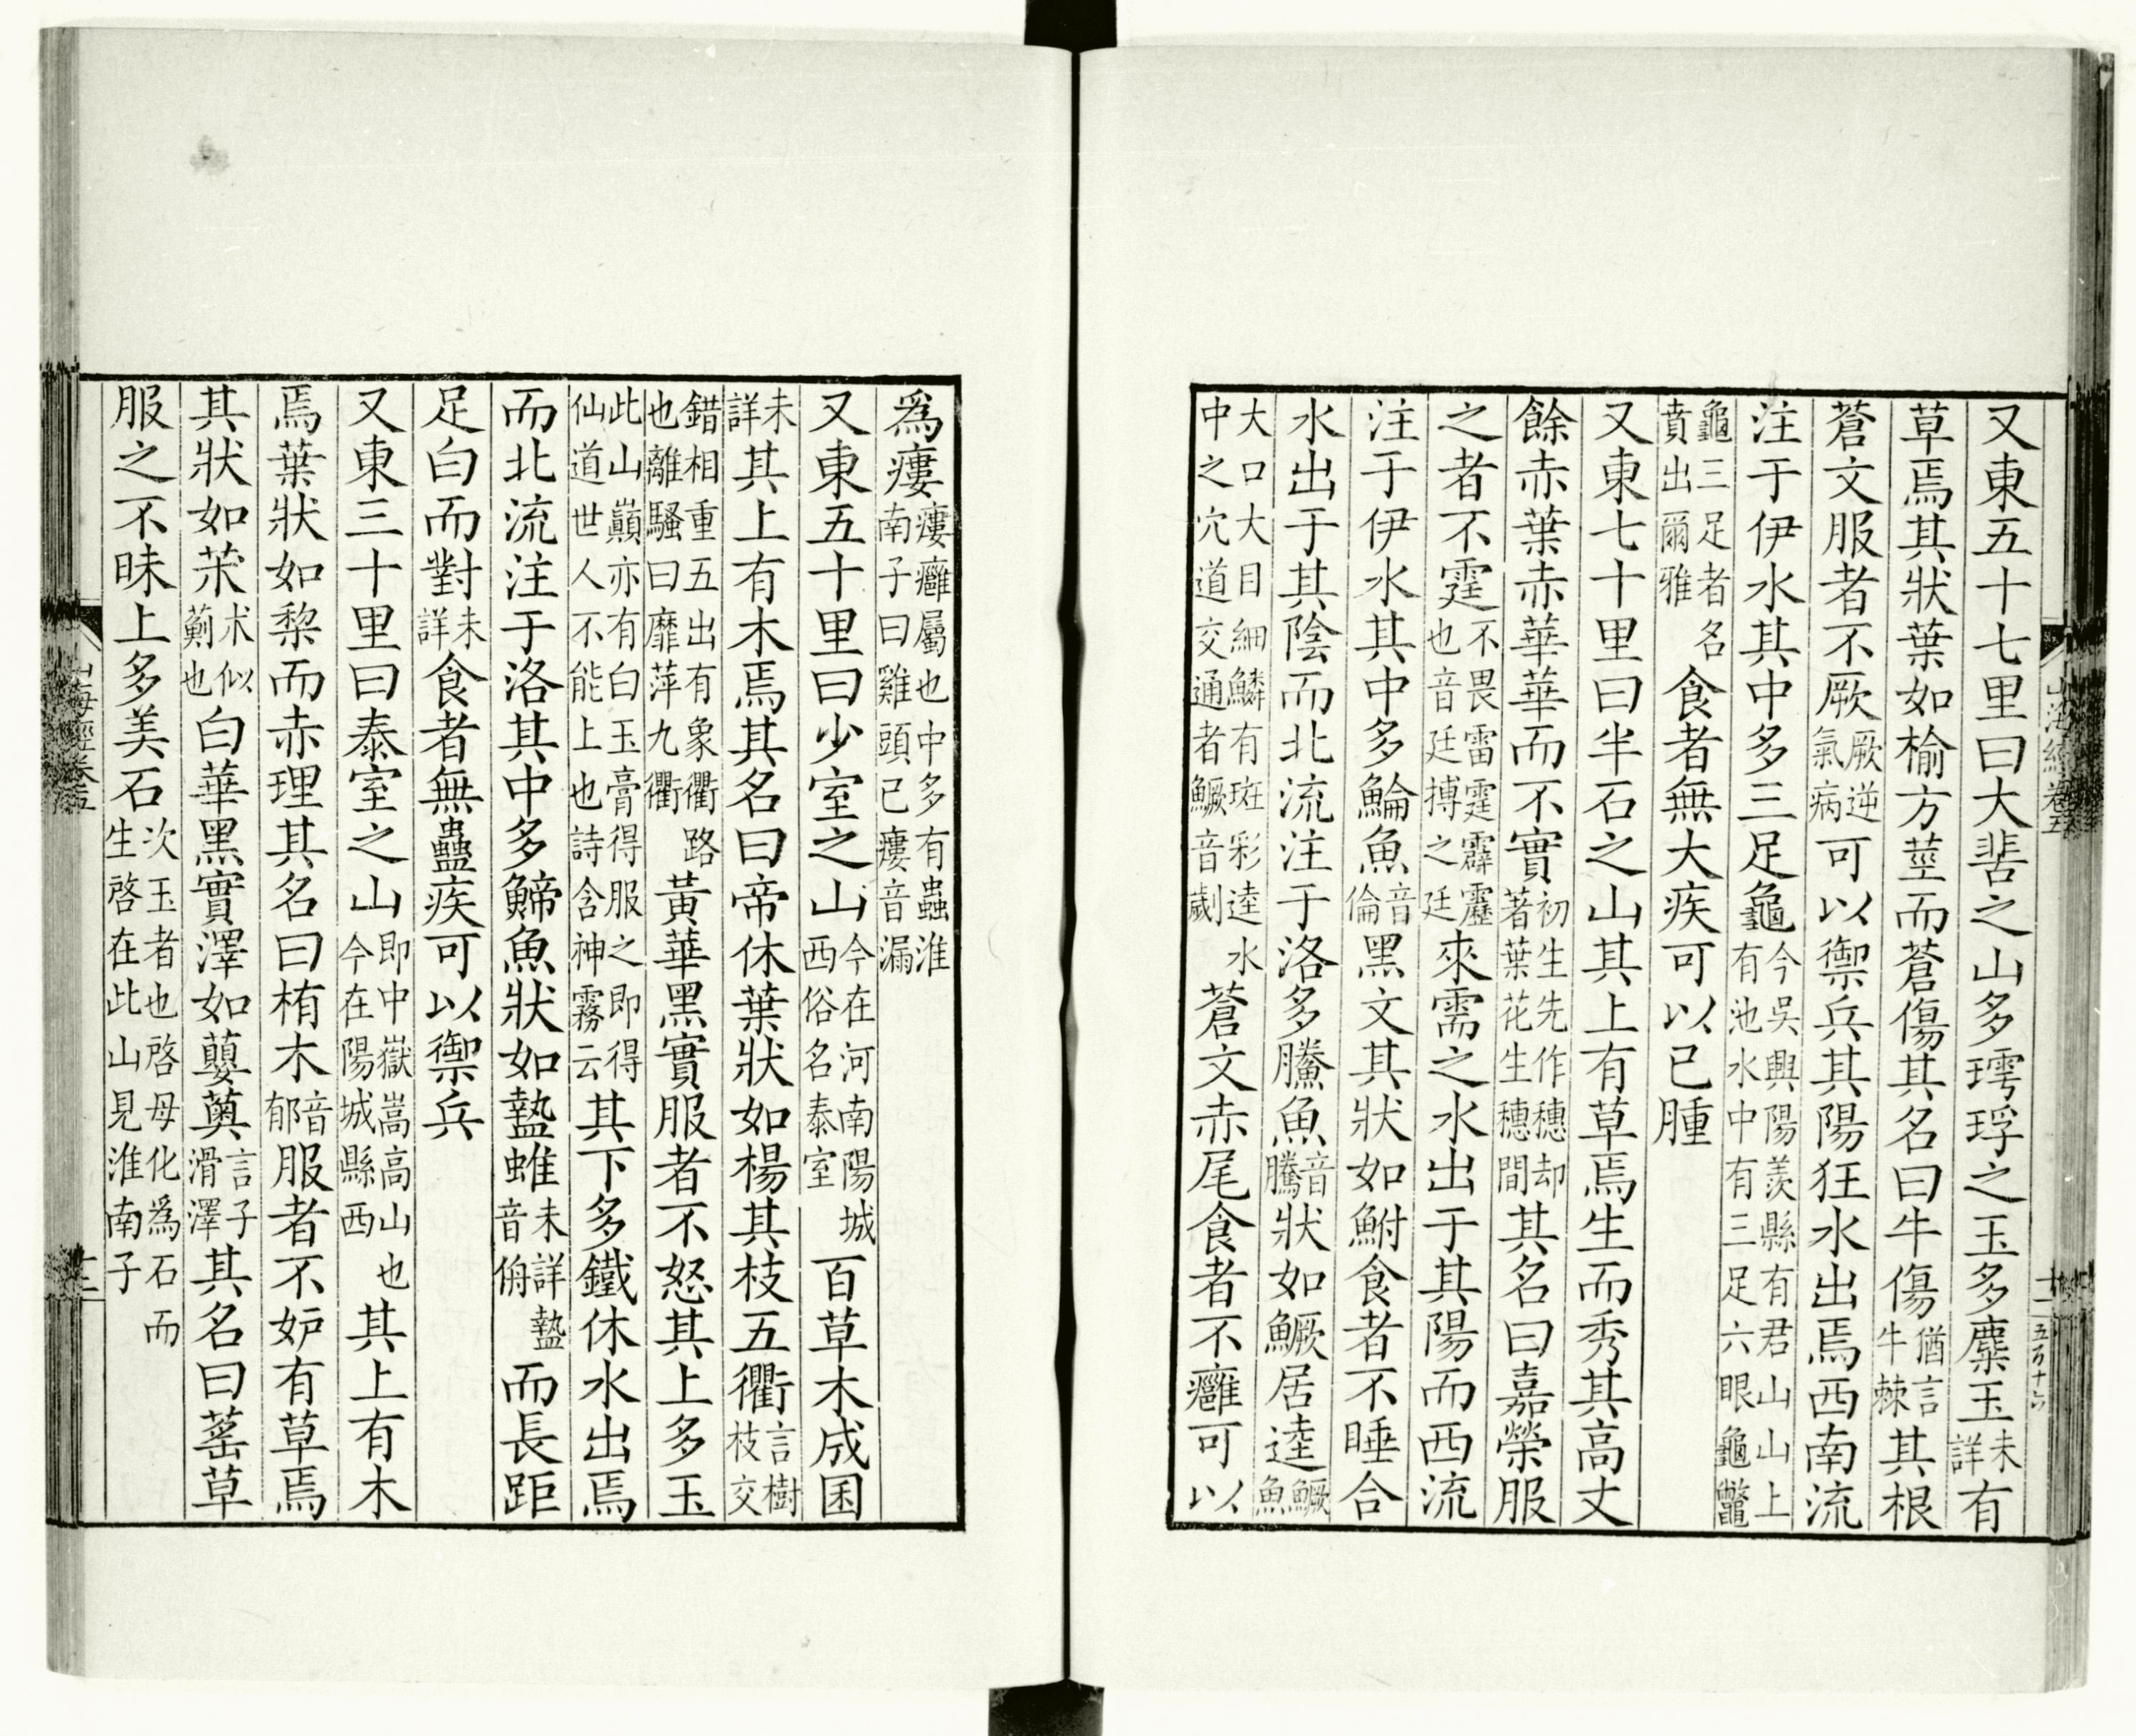 又東五十七里曰大𩇵之山多㻬琈之玉多麋玉未詳有
草焉其狀葉如榆方莖而蒼傷其名曰牛傷猶言牛棘其根
蒼文服者不厥厥逆氣病可以禦兵其陽狂水出焉西南流
注于伊水其中多三足龜今吳興陽羨縣有君山山上有池水中有三足六眼龜鼈
龜三足者名賁出爾雅食者無大疾可以已腫
又東七十里曰半石之山其上有草焉生而秀其高丈
餘赤葉赤華華而不實初生先作穗却著葉花生穗間其名曰嘉榮服
之者不霆不畏雷霆霹靂也音廷搏之廷來需之水出于其陽而西流
注于伊水其中多鯩魚音倫黑文其狀如鮒食者不睡合
水出于其陰而北流注于洛多䲢魚音騰狀如鱖居逵鱖魚
大口大目細鱗有斑彩逵水中之穴道交通者鱖音劌蒼文赤尾食者不癰可以
爲瘻瘻癰屬也中多有蟲淮南子曰雞頭已瘻音漏
又東五十里曰少室之山今在河南陽城西俗名泰室百草木成囷
未詳其上有木焉其名曰帝休葉狀如楊其枝五衢言樹枝交
錯相重五出有象衢路也離騷曰靡萍九衢黃華黑實服者不怒其上多玉
此山巔亦有白玉膏得服之即得仙道世人不能上也詩含神霧云其下多鐵休水出焉
而北流注于洛其中多䱱魚狀如盩蜼未詳盩音俏而長距
足白而對未詳食者無蠱疾可以禦兵
又東三十里曰泰室之山即中嶽嵩高山也今在陽城縣西其上有木
焉葉狀如棃而赤理其名曰栯木音郁服者不妒有草焉
其狀如苿朮似薊也白華黑實澤如蘡薁言子滑澤其名曰䔄草
服之不昧上多美石次玉者也啓母化爲石而生啓在此山見淮南子
山海經卷五
十一
五百十六
山海經卷五
十二